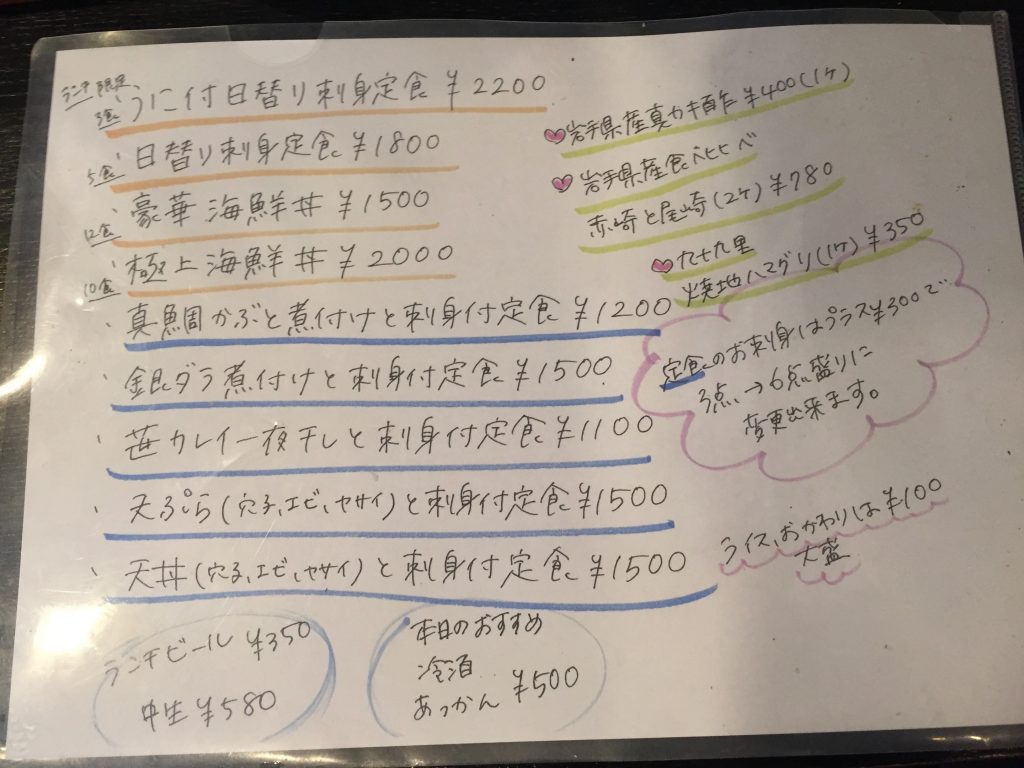 ランチ限定
3食 うに付日替り刺身定食 ¥2200
5食 日替り刺身定食 ¥1800
12食 豪華海鮮丼 ¥1500
10食 極上海鮮丼 ¥2000
・真鯛かぶと煮付けと刺身付定食 ¥1200
・銀ダラ煮付けと刺身付定食 ¥1500
・笹カレイ一夜干しと刺身付定食 ¥1100
・天ぷら(穴子、エビ、ヤサイ)と刺身付定食 ¥1500
・天丼(穴子、エビ、ヤサイ)と刺身付定食 ¥1500
ランチビール ¥350
中生 ¥580
本日のおすすめ
冷酒
あつかん ¥500
岩手県産真カキ酢 ¥400(1ケ)
岩手県産食べヒヒべ
赤崎と尾崎(2ケ) ¥780
九十九里
焼地ハマグリ(1ケ) ¥350
定食のお刺身はプラス¥300で
3点→6点盛りに
変更出来ます。
ライス、おかわりは¥100
大盛